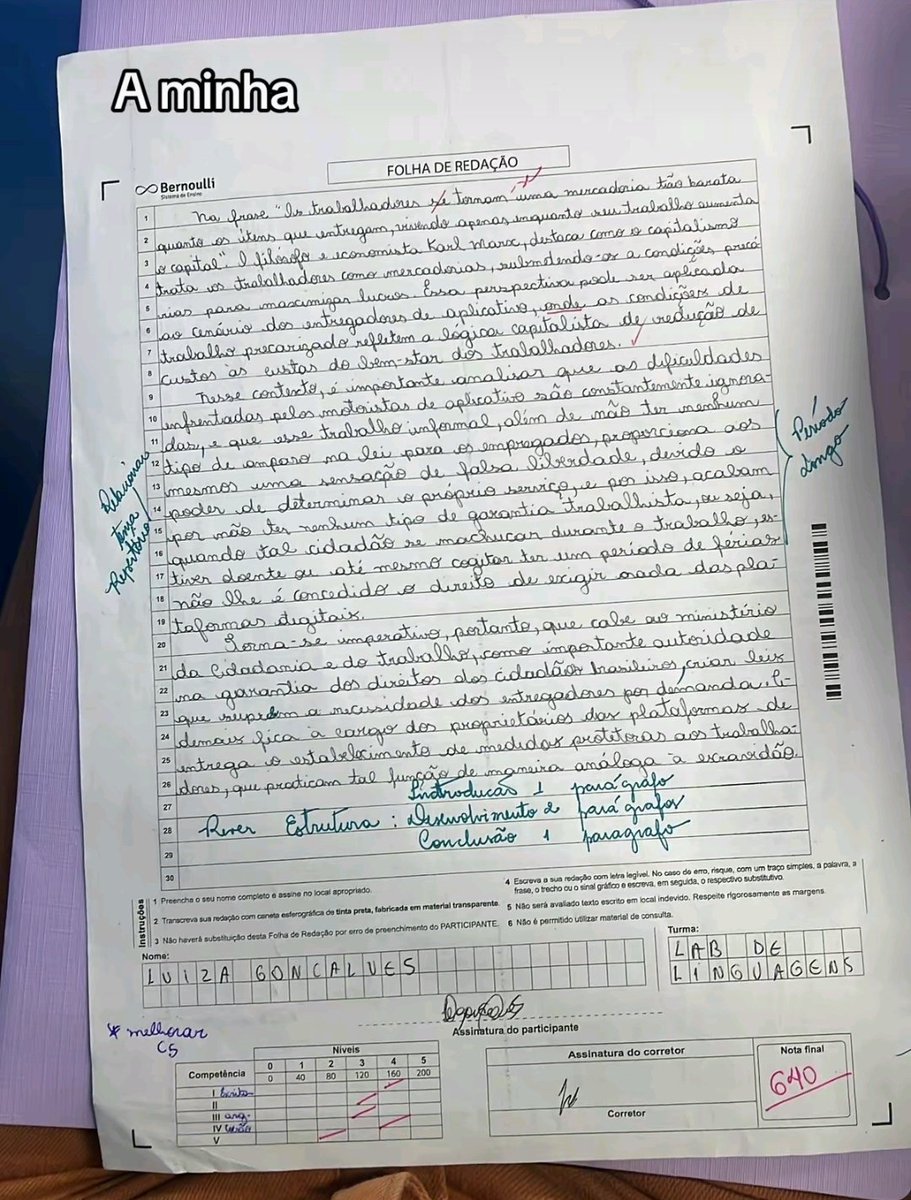 A minha
FOLHA DE REDAÇÃO
Bernoulli
Sistema de Ensino
1 Na frase "Os trabalhadores se tornam uma mercadoria tão barata
2 quanto os itens que entregam, vivendo apenas enquanto seu trabalho aumenta
3 o capital". O filósofo e economista Karl Marx, destaca como o capitalismo
4 trata os trabalhadores como mercadorias, submetendo-os a condições precá
5 rias para maximizar lucros. Essa perspectiva pode ser aplicada
6 ao cenário dos entregadores de aplicativo, onde as condições de
7 trabalho precarizado refletem a lógica capitalista de redução de
8 custos às custas do bem-star dos trabalhadores.
9 Nesse contexto, é importante analisar que as dificuldades
10 enfrentadas pelos motoristas de aplicativo são constantemente ignora-
11 das, e que esse trabalho informal, além de não ter nenhum
12 tipo de amparo na lei para os empregados, proporciona aos
13 mesmos uma sensação de falsa liberdade, devido o
14 poder de determinar o próprio serviço, e por isso, acabam
15 por não ter nenhum tipo de garantia trabalhista, ou seja,
16 quando tal cidadão se machucar durante o trabalho, es-
17 tiver doente ou até mesmo cogitar ter um período de férias
18 não lhe é concedido o direito de exigir nada das pla-
19 taformas digitais.
20 Torna-se imperativo, portanto, que cabe ao ministério
21 da Cidadania e do trabalho, como importante autoridade
22 na garantia dos direitos dos cidadãos brasileiros, criar leis
23 que a necessidade dos entregadores por demanda.
24 demais fica a cargo dos proprietários das plataformas de
25 entrega o estabelecimento de medidas protitoras aos trabalha-
26 dores, que praticam tal função de maneira análoga à escravidão.
27
28
29
30
Relacionar
tema
Repertório
Período
longo
Introdução 1 parágrafo
Rever Estrutura: Desenvolvimento 2 parágrafos
Conclusão 1 paragrafo
Instruções
1 Preencha o seu nome completo e assine no local apropriado.
2 Transcreva sua redação com caneta esferográfica de tinta preta, fabricada em material transparente.
3 Não haverá substituição desta Folha de Redação por erro de preenchimento do PARTICIPANTE.
4 Escreva a sua redação com letra legível. No caso de erro, risque, com um traço simples, a palavra, a
frase, o trecho ou o sinal gráfico e escreva, em seguida, o respectivo substitutivo.
5 Não será avaliado texto escrito em local indevido. Respeite rigorosamente as margens.
6 Não é permitido utilizar material de consulta.
Nome:
LUIZA GONCALVES
Turma:
LAB DE
LINGUAGENS
Assinatura do participante
* melhorar
C5
Níveis
Competência 0 1 2 3 4 5
0 40 80 120 160 200
I Escrita
II
III arg.
IV
V
Assinatura do corretor
Corretor
Nota final
640